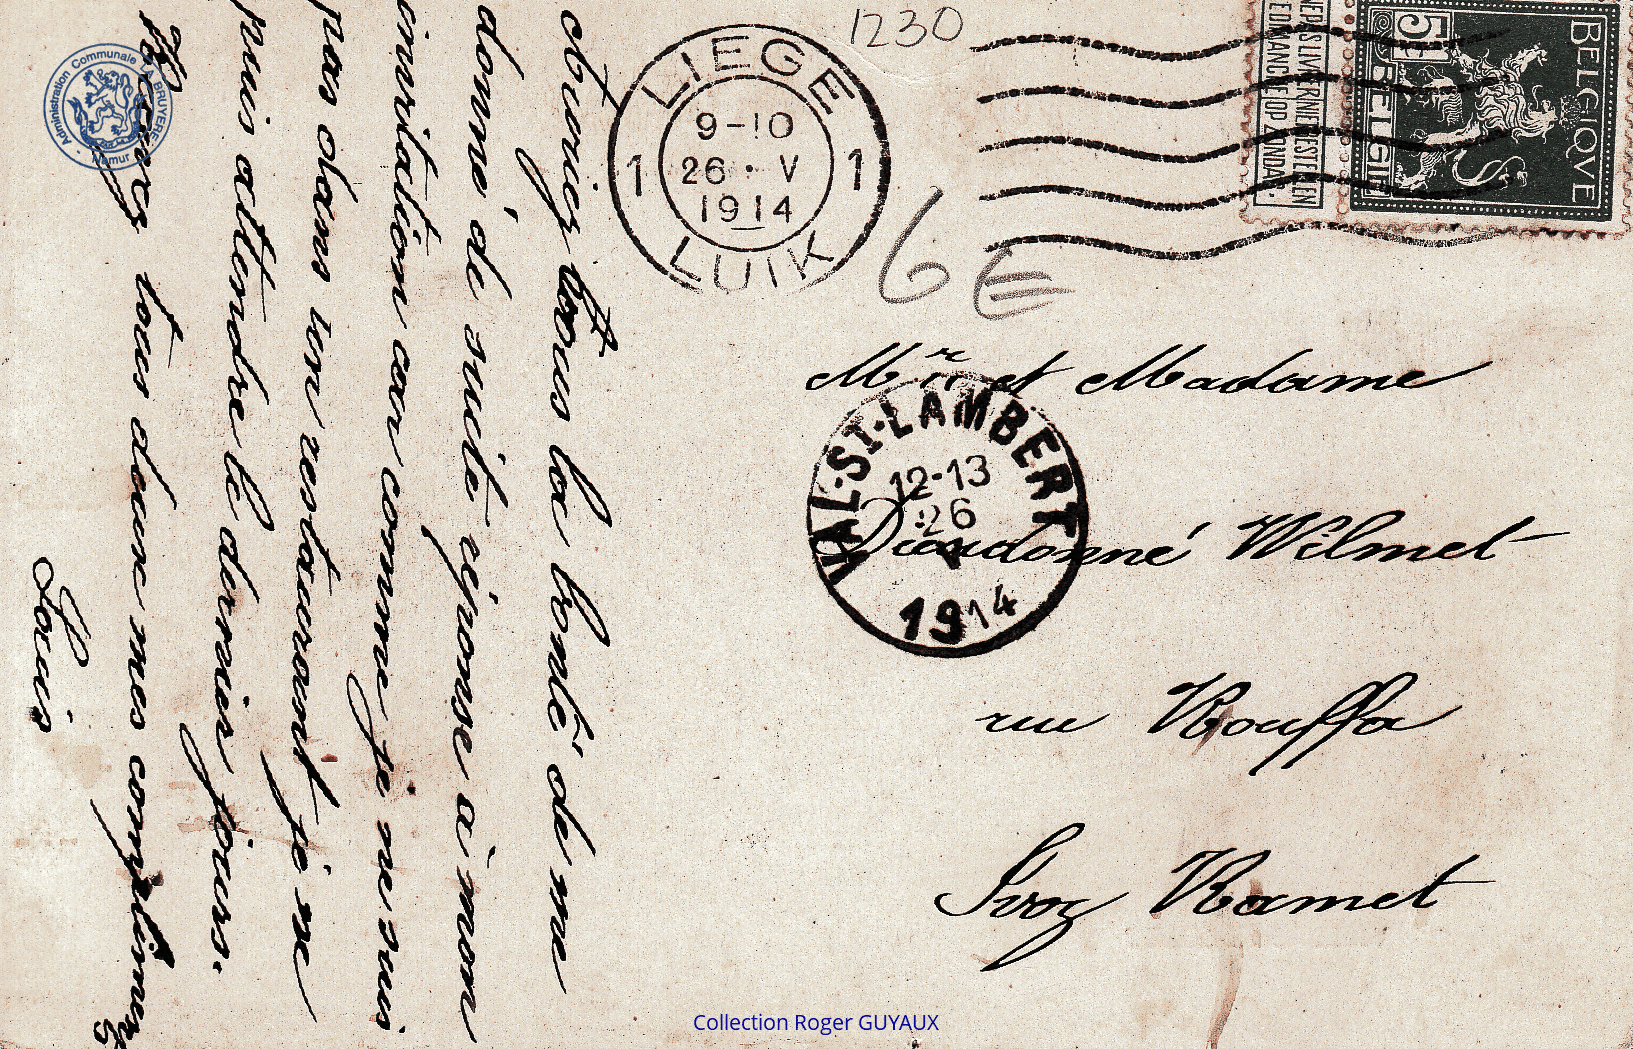 1230
LIEGE
9-10
1 26 · V 1
1914
LUIK
BELGIQVE
5c
BELGIË
NE PAS LIVRER LE DIMANCHE
NIET BESTELLEN OP ZONDAG.
6€
Mr et Madame
VAL-ST-LAMBERT
12-13
26
V
1914
Dieudonné Wilmet
rue Rouffa
Ivoz Ramet
auriez vous la bonté de me
donné de suite réponse à mon
invitation car comme je ne suis
pas dans un restaurant je ne
puis attendre le dernier jours.
Recevez tous deux mes compliments
Louis
Administration Communale LA BRUYERE
Namur
Collection Roger GUYAUX